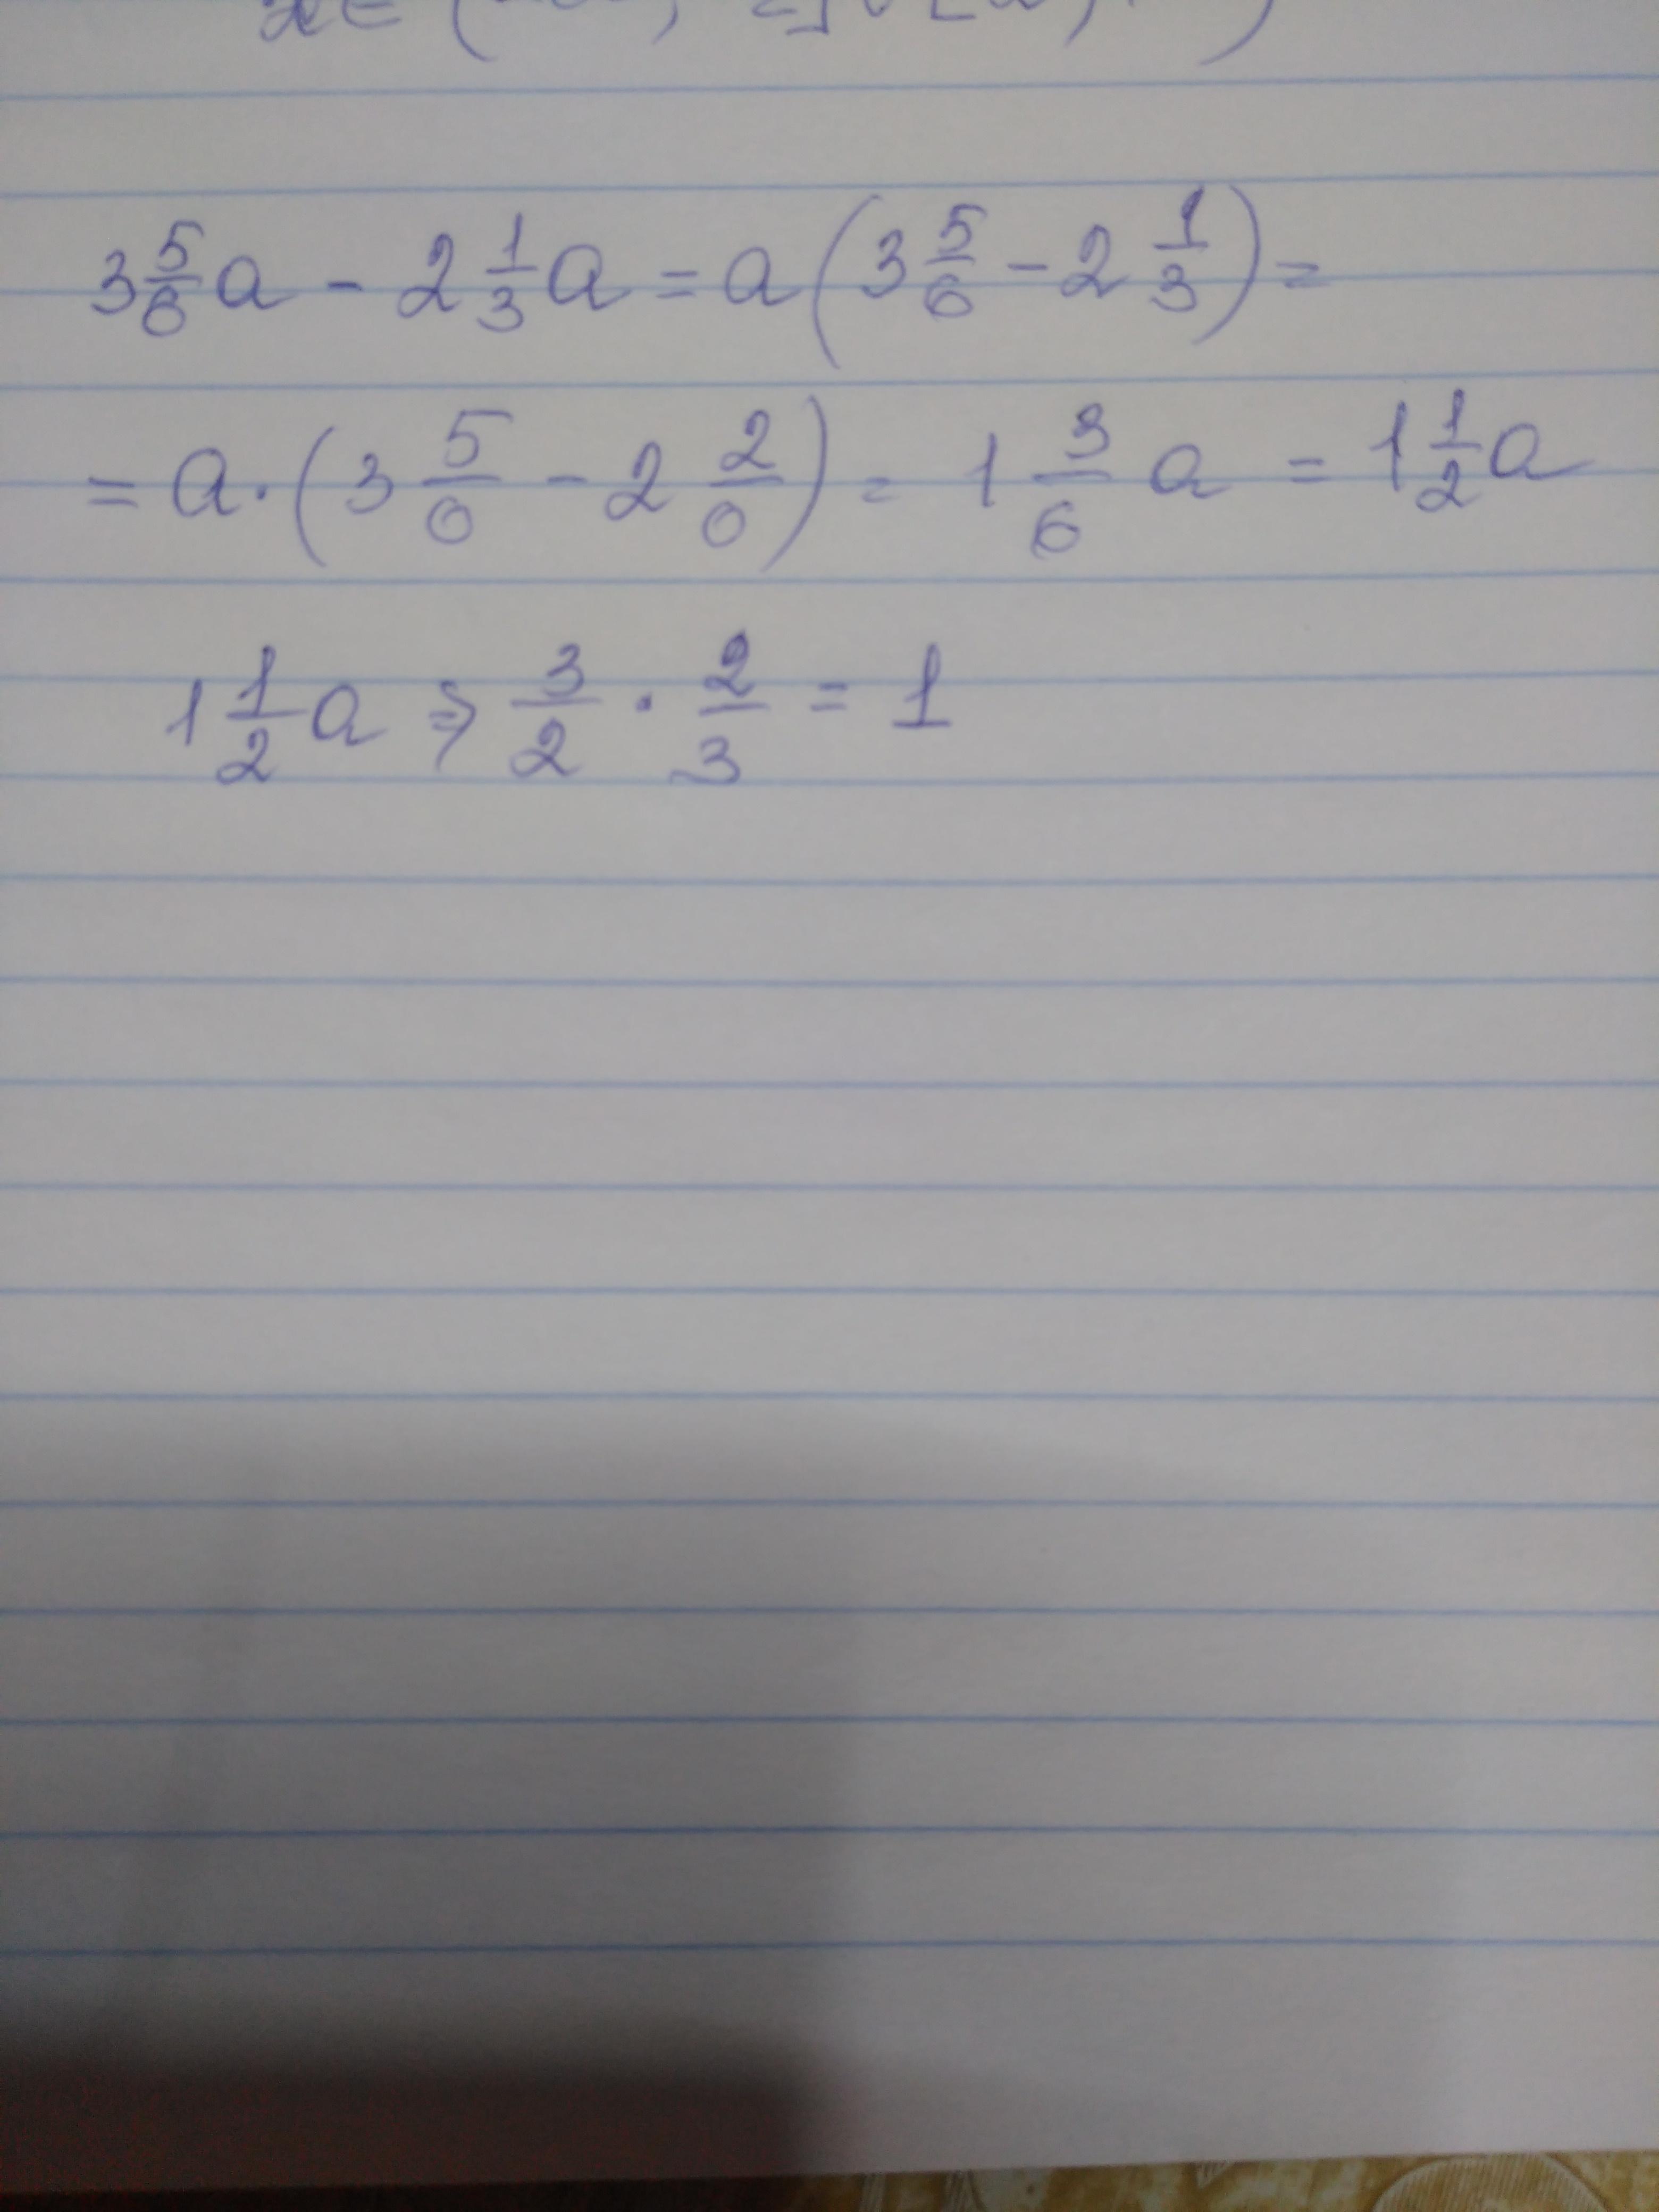 x ∈ (
3 5/6 a - 2 1/3 a = a (3 5/6 - 2 1/3) =
= a · (3 5/6 - 2 2/6) = 1 3/6 a = 1 1/2 a
1 1/2 a ⇒ 3/2 · 2/3 = 1